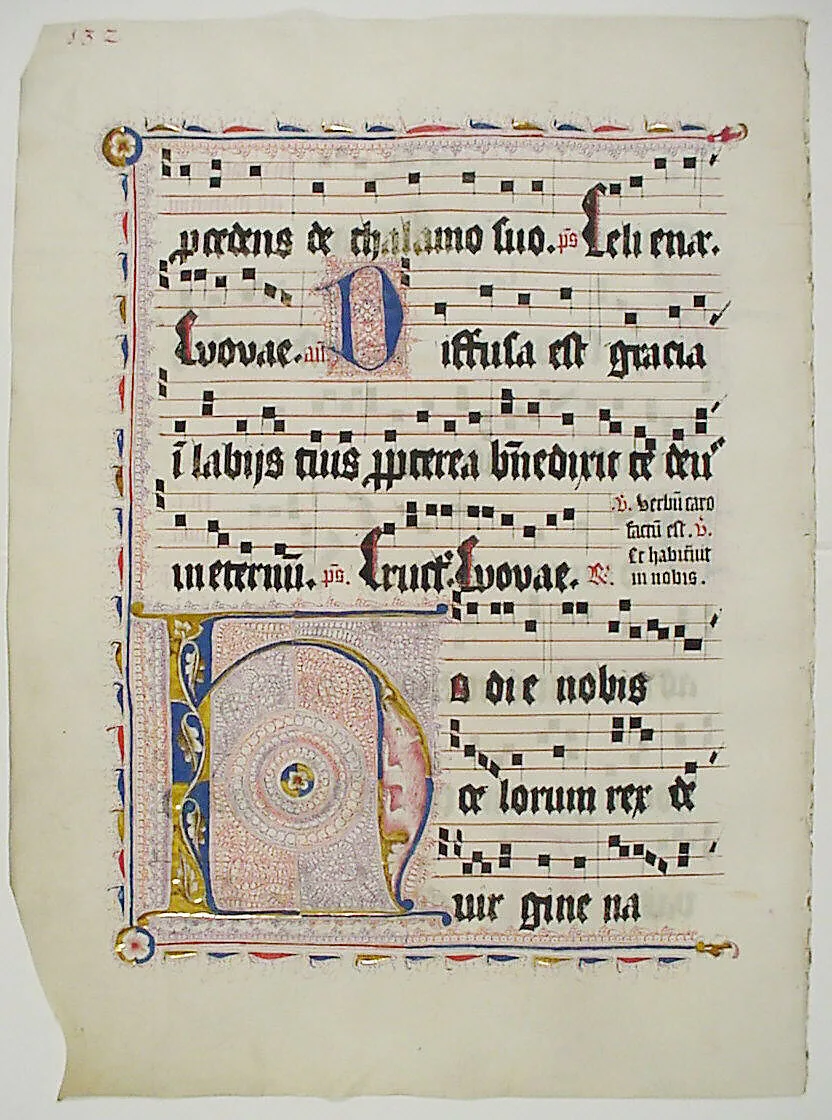 132
p̄cedens de thalamo suo. p̄s Celi enar.
Evovae. añ Diffusa est gracia
ī labijs tuis ꝓpterea bn̄edixit te deū
in eternū. p̄s. Eruct. Evovae. R.
V. verbū caro
factū est. V.
Et habitāūt
in nobis.
Ho die nobis
ce lorum rex de
uir gine na